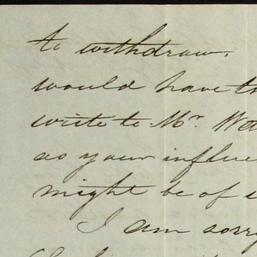 to withdraw.
would have th
write to Mr. We
as your influe
might be of s
I am sorry